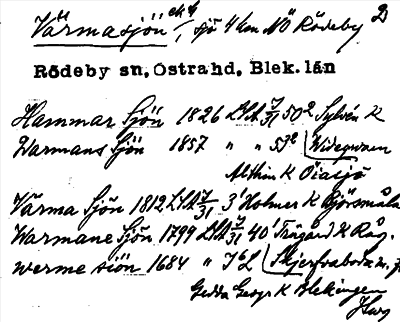 Värmasjön sjö 4 km NÖ Rödeby
Rödeby sn, Östra hd, Blek. län
Hammar Sjön 1826 LSA 7/31 50² Sylvén K
Warmans Sjön 1857 " " 53² Widegvarn
Althin K Öiasjö
Värma Sjön 1812 LSA 7/31 3¹ Holmer K Björsmåla
Warmane Sjön 1799 LSA 7/31 40¹ Trägård K Råg.
werme siön 1684 " Skjerfvaboda
Gedda Geogr K Blekingen